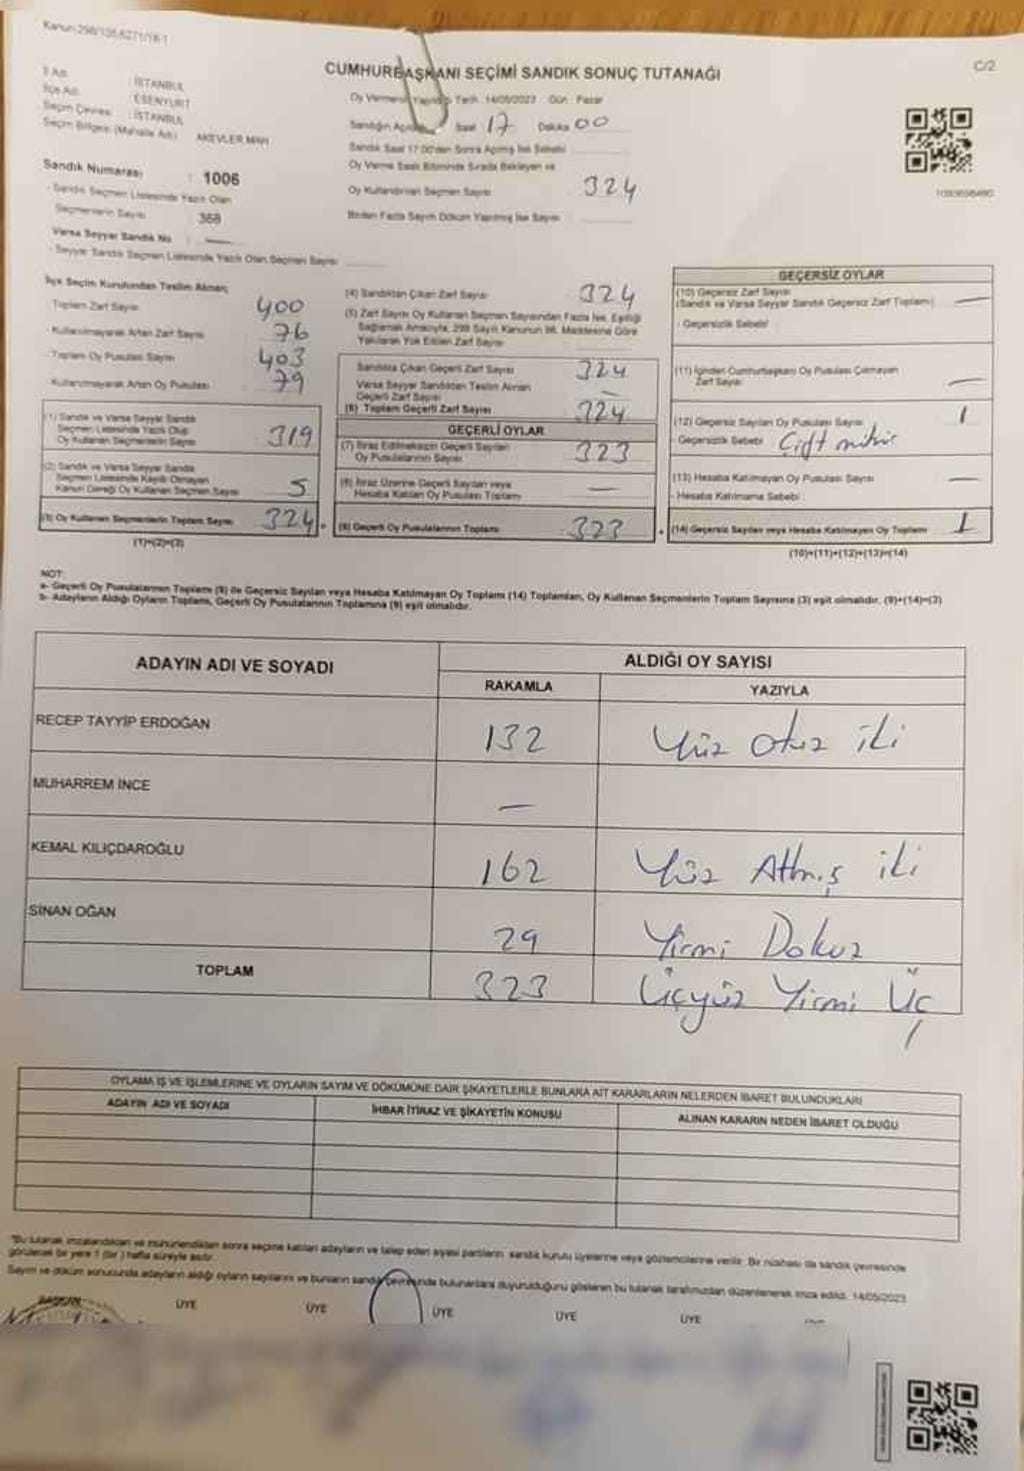 Kanun:298/105,6271/18-1
C/2
CUMHURBAŞKANI SEÇİMİ SANDIK SONUÇ TUTANAĞI
İl Adı : İSTANBUL
İlçe Adı : ESENYURT
Seçim Çevresi : İSTANBUL
Seçim Bölgesi (Mahalle Adı) AKEVLER MAH
Sandık Numarası : 1006
- Sandık Seçmen Listesinde Yazılı Olan
Seçmenlerin Sayısı : 368
Varsa Seyyar Sandık No : —
- Seyyar Sandık Seçmen Listesinde Yazılı Olan Seçmen Sayısı
Oy Vermenin Yapıldığı Tarih : 14/05/2023 Gün : Pazar
Sandığın Açıldığı Saat 17 Dakika 00
Sandık Saat 17.00'den Sonra Açılmış İse Sebebi
Oy Verme Saati Bitiminde Sırada Bekleyen ve
Oy Kullandırılan Seçmen Sayısı 324
Birden Fazla Sayım Döküm Yapılmış İse Sayısı
İlçe Seçim Kurulundan Teslim Alınan;
- Toplam Zarf Sayısı 400
- Kullanılmayarak Artan Zarf Sayısı 76
- Toplam Oy Pusulası Sayısı 403
- Kullanılmayarak Artan Oy Pusulası 79
(1) Sandık ve Varsa Seyyar Sandık
Seçmen Listesinde Yazılı Olup
Oy Kullanan Seçmenlerin Sayısı 319
(2) Sandık ve Varsa Seyyar Sandık
Seçmen Listesinde Kayıtlı Olmayan
Kanun Gereği Oy Kullanan Seçmen Sayısı 5
(3) Oy Kullanan Seçmenlerin Toplam Sayısı 324
(1)+(2)=(3)
(4) Sandıktan Çıkan Zarf Sayısı 324
(5) Zarf Sayısı Oy Kullanan Seçmen Sayısından Fazla İse, Eşitliği
Sağlamak Amacıyla, 298 Sayılı Kanunun 98. Maddesine Göre
Yakılarak Yok Edilen Zarf Sayısı
Sandıkta Çıkan Geçerli Zarf Sayısı 324
Varsa Seyyar Sandıktan Teslim Alınan
Geçerli Zarf Sayısı —
(6) Toplam Geçerli Zarf Sayısı 324
GEÇERLİ OYLAR
(7) İtiraz Edilmeksizin Geçerli Sayılan
Oy Pusulalarının Sayısı 323
(8) İtiraz Üzerine Geçerli Sayılan veya
Hesaba Katılan Oy Pusulası Toplamı —
(9) Geçerli Oy Pusulalarının Toplamı 323
GEÇERSİZ OYLAR
(10) Geçersiz Zarf Sayısı
(Sandık ve Varsa Seyyar Sandık Geçersiz Zarf Toplamı) —
- Geçersizlik Sebebi
(11) İçinden Cumhurbaşkanı Oy Pusulası Çıkmayan
Zarf Sayısı —
(12) Geçersiz Sayılan Oy Pusulası Sayısı 1
- Geçersizlik Sebebi Çift mühür
(13) Hesaba Katılmayan Oy Pusulası Sayısı —
- Hesaba Katılmama Sebebi
(14) Geçersiz Sayılan veya Hesaba Katılmayan Oy Toplamı 1
(10)+(11)+(12)+(13)=(14)
NOT:
a- Geçerli Oy Pusulalarının Toplamı (9) ile Geçersiz Sayılan veya Hesaba Katılmayan Oy Toplamı (14) Toplamları, Oy Kullanan Seçmenlerin Toplam Sayısına (3) eşit olmalıdır. (9)+(14)=(3)
b- Adayların Aldığı Oyların Toplamı, Geçerli Oy Pusulalarının Toplamına (9) eşit olmalıdır.
ADAYIN ADI VE SOYADI
ALDIĞI OY SAYISI
RAKAMLA YAZIYLA
RECEP TAYYİP ERDOĞAN 132 Yüz otuz iki
MUHARREM İNCE —
KEMAL KILIÇDAROĞLU 162 Yüz Atmış iki
SİNAN OĞAN 29 Yirmi Dokuz
TOPLAM 323 Üçyüz Yirmi Üç
OYLAMA İŞ VE İŞLEMLERİNE VE OYLARIN SAYIM VE DÖKÜMÜNE DAİR ŞİKAYETLERLE BUNLARA AİT KARARLARIN NELERDEN İBARET BULUNDUKLARI
ADAYIN ADI VE SOYADI İHBAR İTİRAZ VE ŞİKAYETİN KONUSU ALINAN KARARIN NEDEN İBARET OLDUĞU
*Bu tutanak imzalandıktan ve mühürlendikten sonra seçime katılan adayların ve talep eden siyasi partilerin sandık kurulu üyelerine veya gözlemcilerine verilir. Bir nüshası da sandık çevresinde
görülecek bir yere 1 (bir) hafta süreyle asılır.
Sayım ve döküm sonucunda adayların aldığı oyların sayılarını ve bunların sandık çevresinde bulunanlara duyurulduğunu gösteren bu tutanak tarafımızdan düzenlenerek imza edildi. 14/05/2023
BAŞKAN ÜYE ÜYE ÜYE ÜYE ÜYE